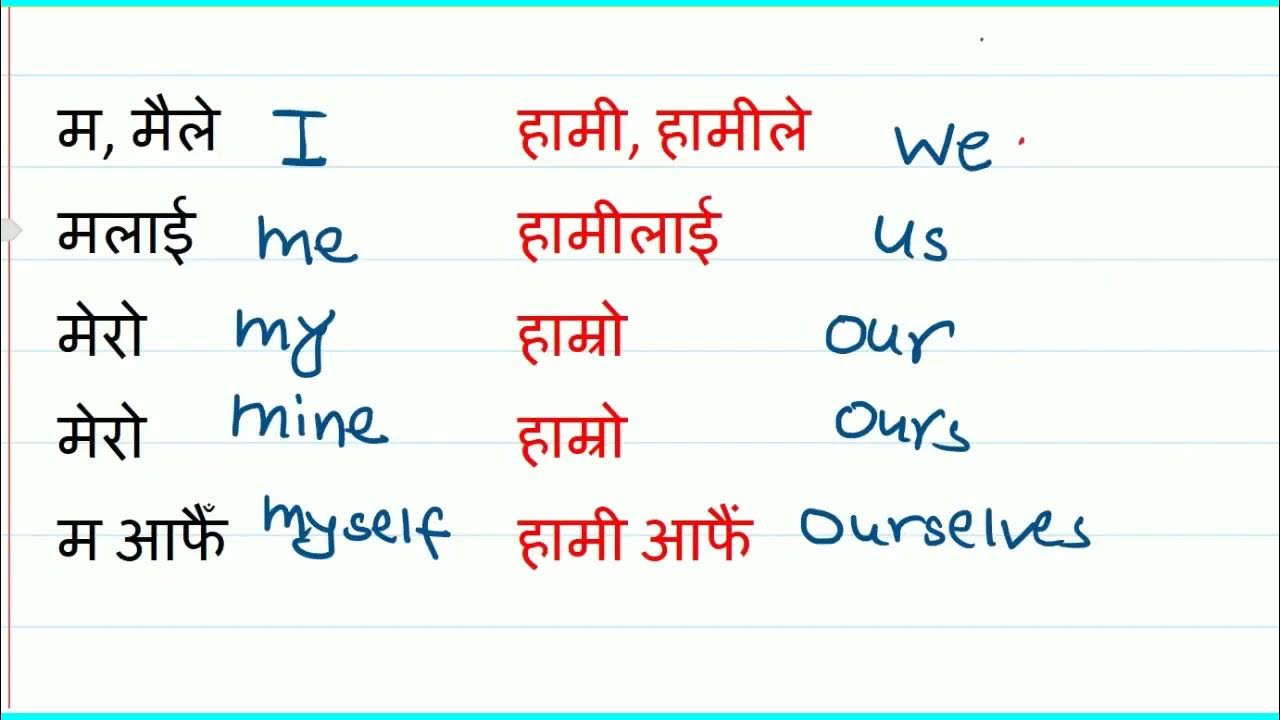 म, मैले I हामी, हामीले We
मलाई me हामीलाई us
मेरो my हाम्रो our
मेरो mine हाम्रो ours
म आफैँ myself हामी आफैं ourselves